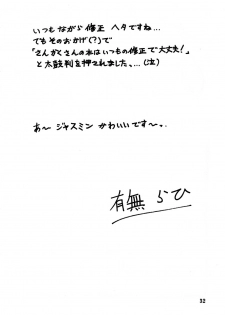 いつもながら修正 ヘタですね…
でもそのおかげ(?)で
「さんがくさんの本はいつもの修正で大丈夫!」
と太鼓判を押されました。…(泣)
あ〜 ジャスミン かわいいです〜。
有無 らひ
32